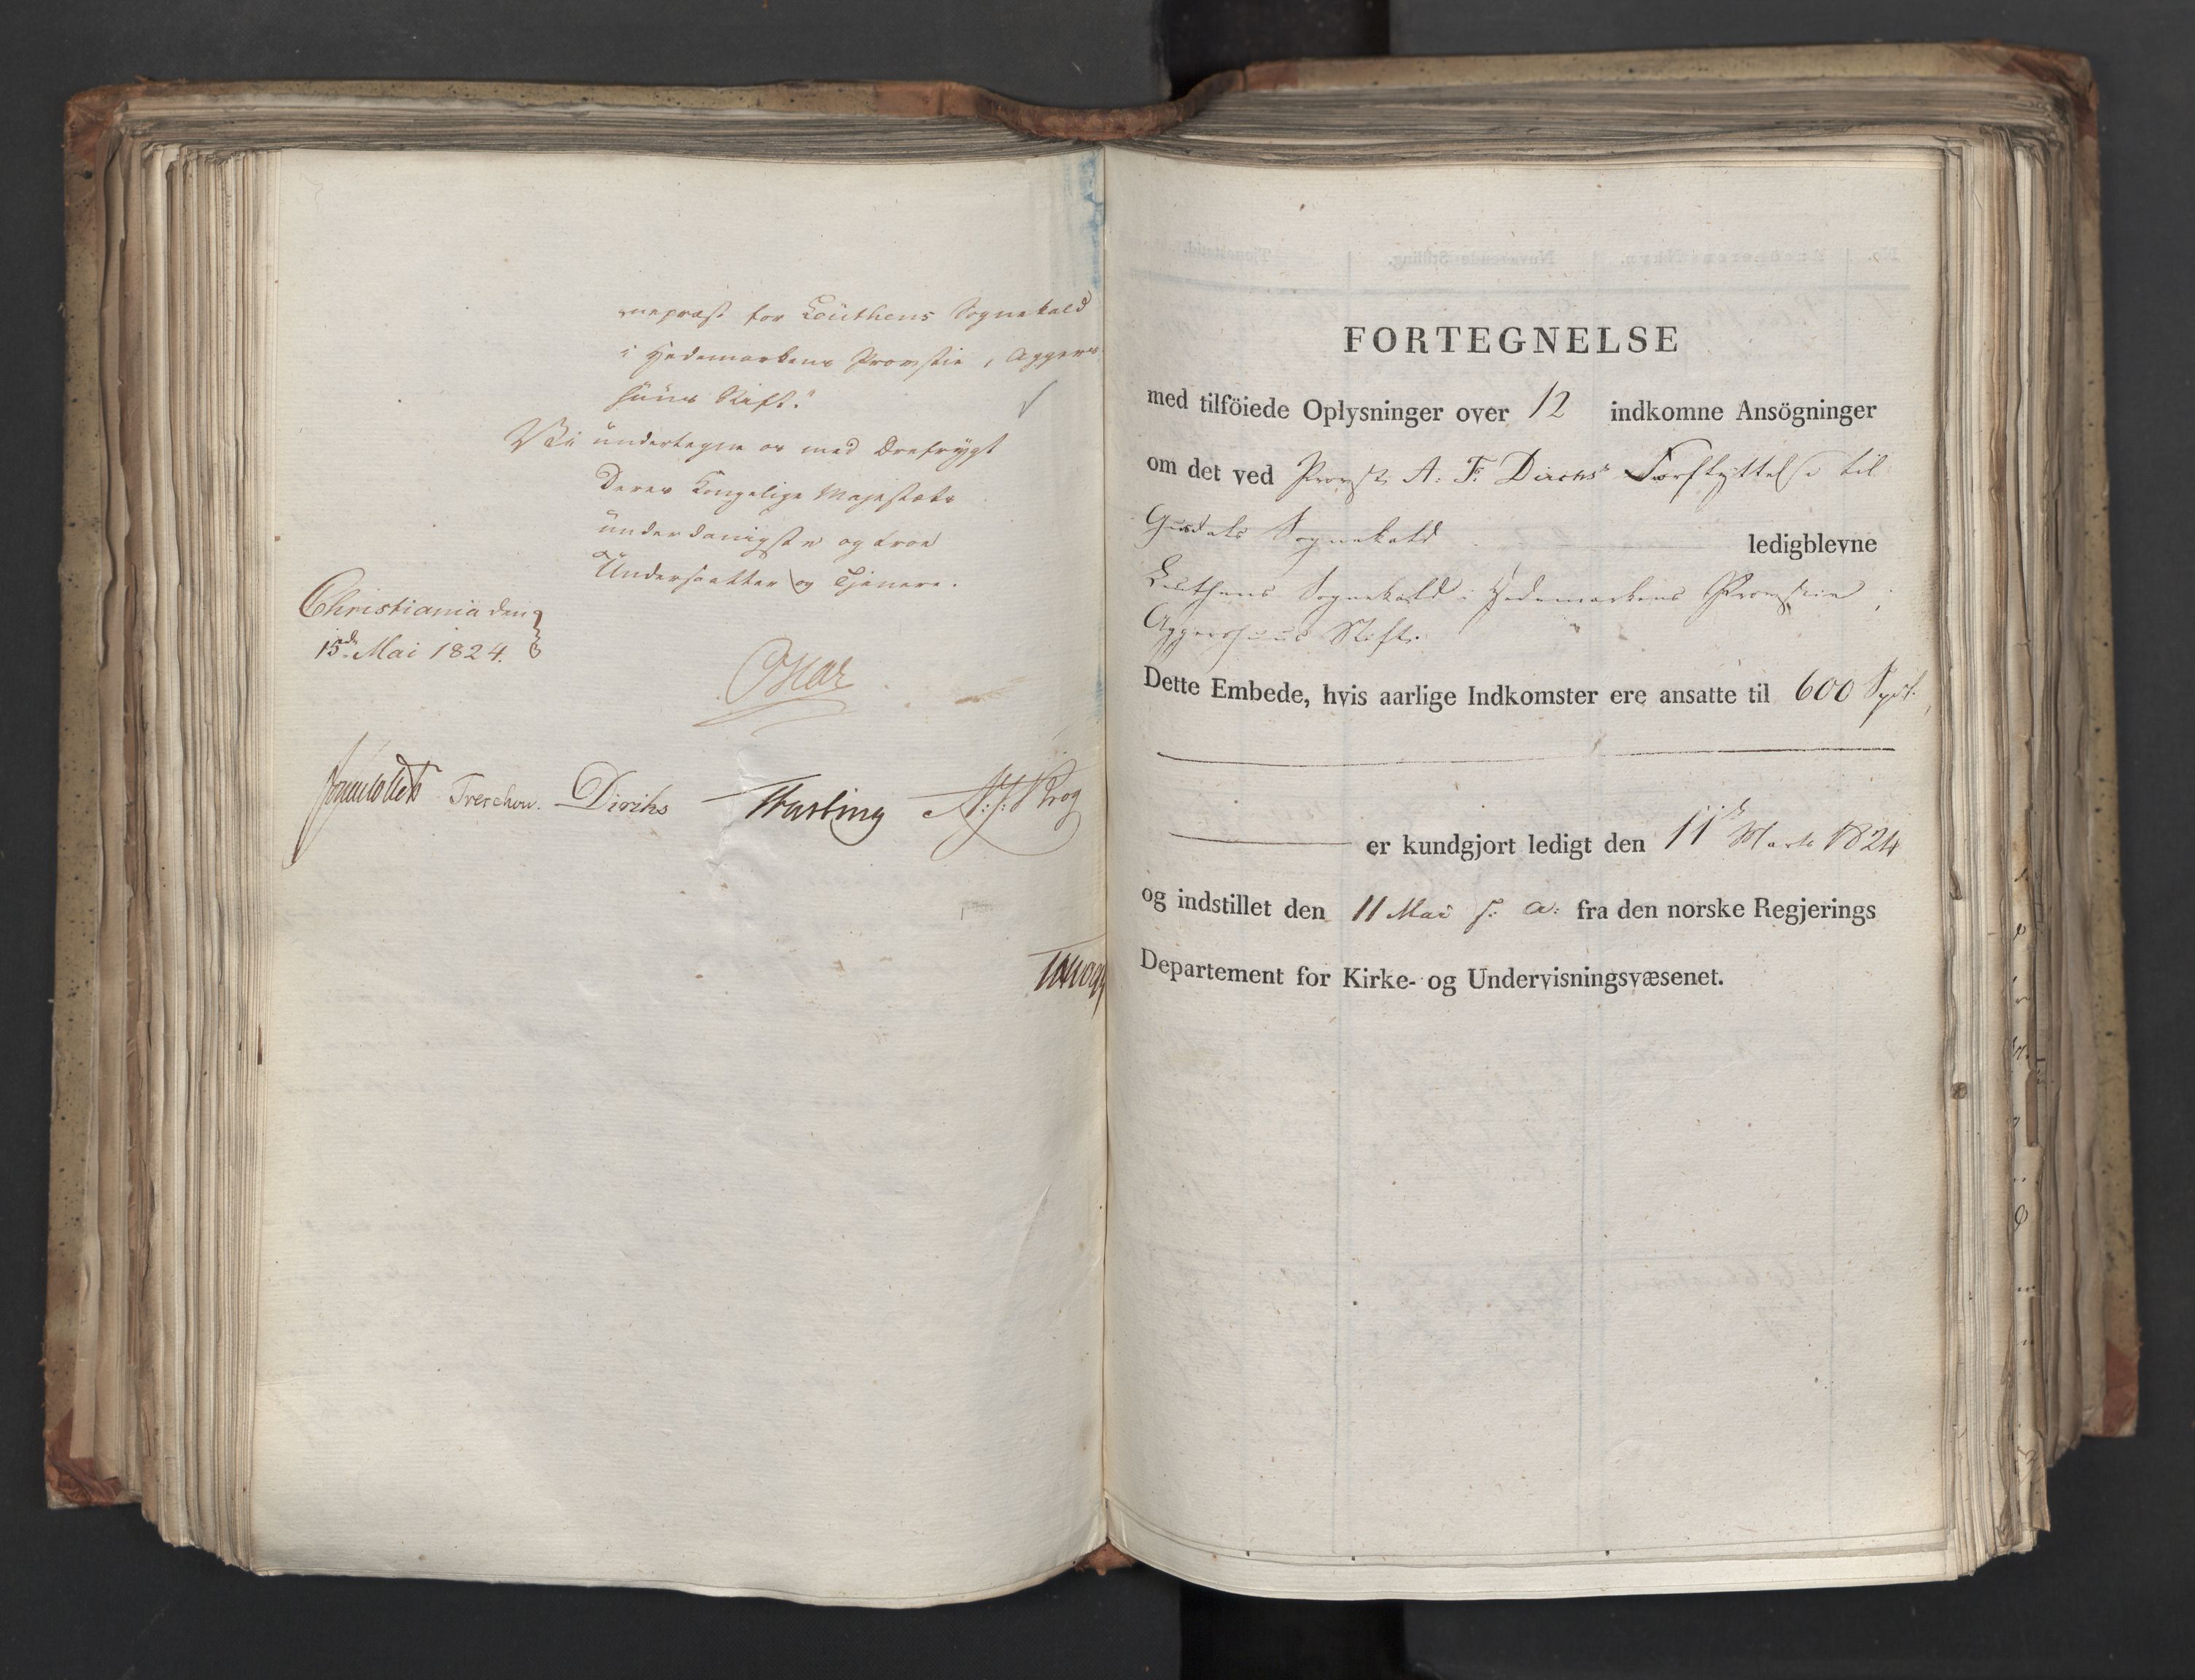 nepræst for Leuthens Sognekald
i Hedemarkens Provstie, Aggers-
huus Stift."
Vi undertegne os med Ærefrygt
Deres Kongelige Majestæts
underdanigste og troe
Undersaatter og Tjenere.
Christiania den
15de Mai 1824.
Oscar
Jonas Collett Treschow. Diriks Fasting N: J: Krog
FORTEGNELSE
med tilföiede Oplysninger over 12 indkomne Ansögninger
om det ved Provst A. F. Diricks' Forflyttelse til
Gusdals Sognekald ledigblevne
Leuthens Sognekald i Hedemarkens Provstie,
Aggershuus Stift.
Dette Embede, hvis aarlige Indkomster ere ansatte til 600 Spd.
er kundgjort ledigt den 11te Marts 1824
og indstillet den 11 Mai s: a: fra den norske Regjerings
Departement for Kirke- og Undervisningsvæsenet.